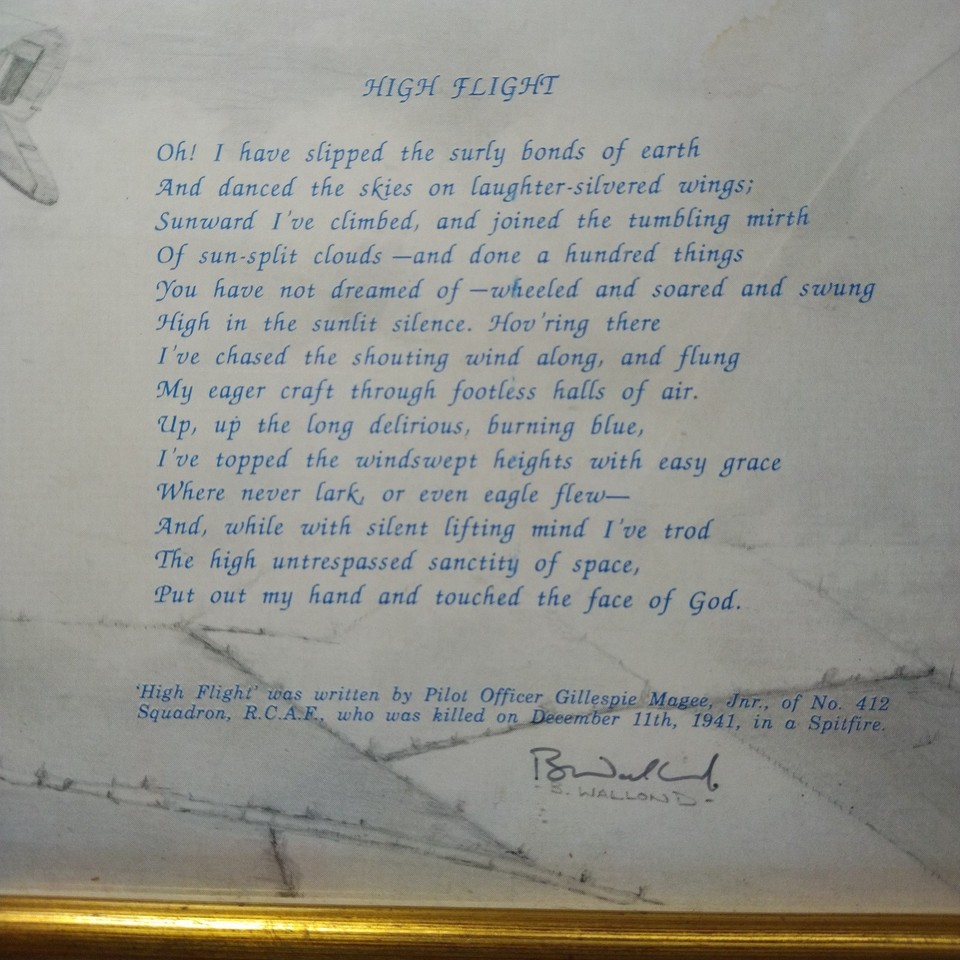 HIGH FLIGHT
Oh! I have slipped the surly bonds of earth
And danced the skies on laughter-silvered wings;
Sunward I've climbed, and joined the tumbling mirth
Of sun-split clouds —and done a hundred things
You have not dreamed of —wheeled and soared and swung
High in the sunlit silence. Hov'ring there
I've chased the shouting wind along, and flung
My eager craft through footless halls of air.
Up, up the long delirious, burning blue,
I've topped the windswept heights with easy grace
Where never lark, or even eagle flew—
And, while with silent lifting mind I've trod
The high untrespassed sanctity of space,
Put out my hand and touched the face of God.
'High Flight' was written by Pilot Officer Gillespie Magee, Jnr., of No. 412
Squadron, R.C.A.F., who was killed on December 11th, 1941, in a Spitfire.
- B. WALLOND -